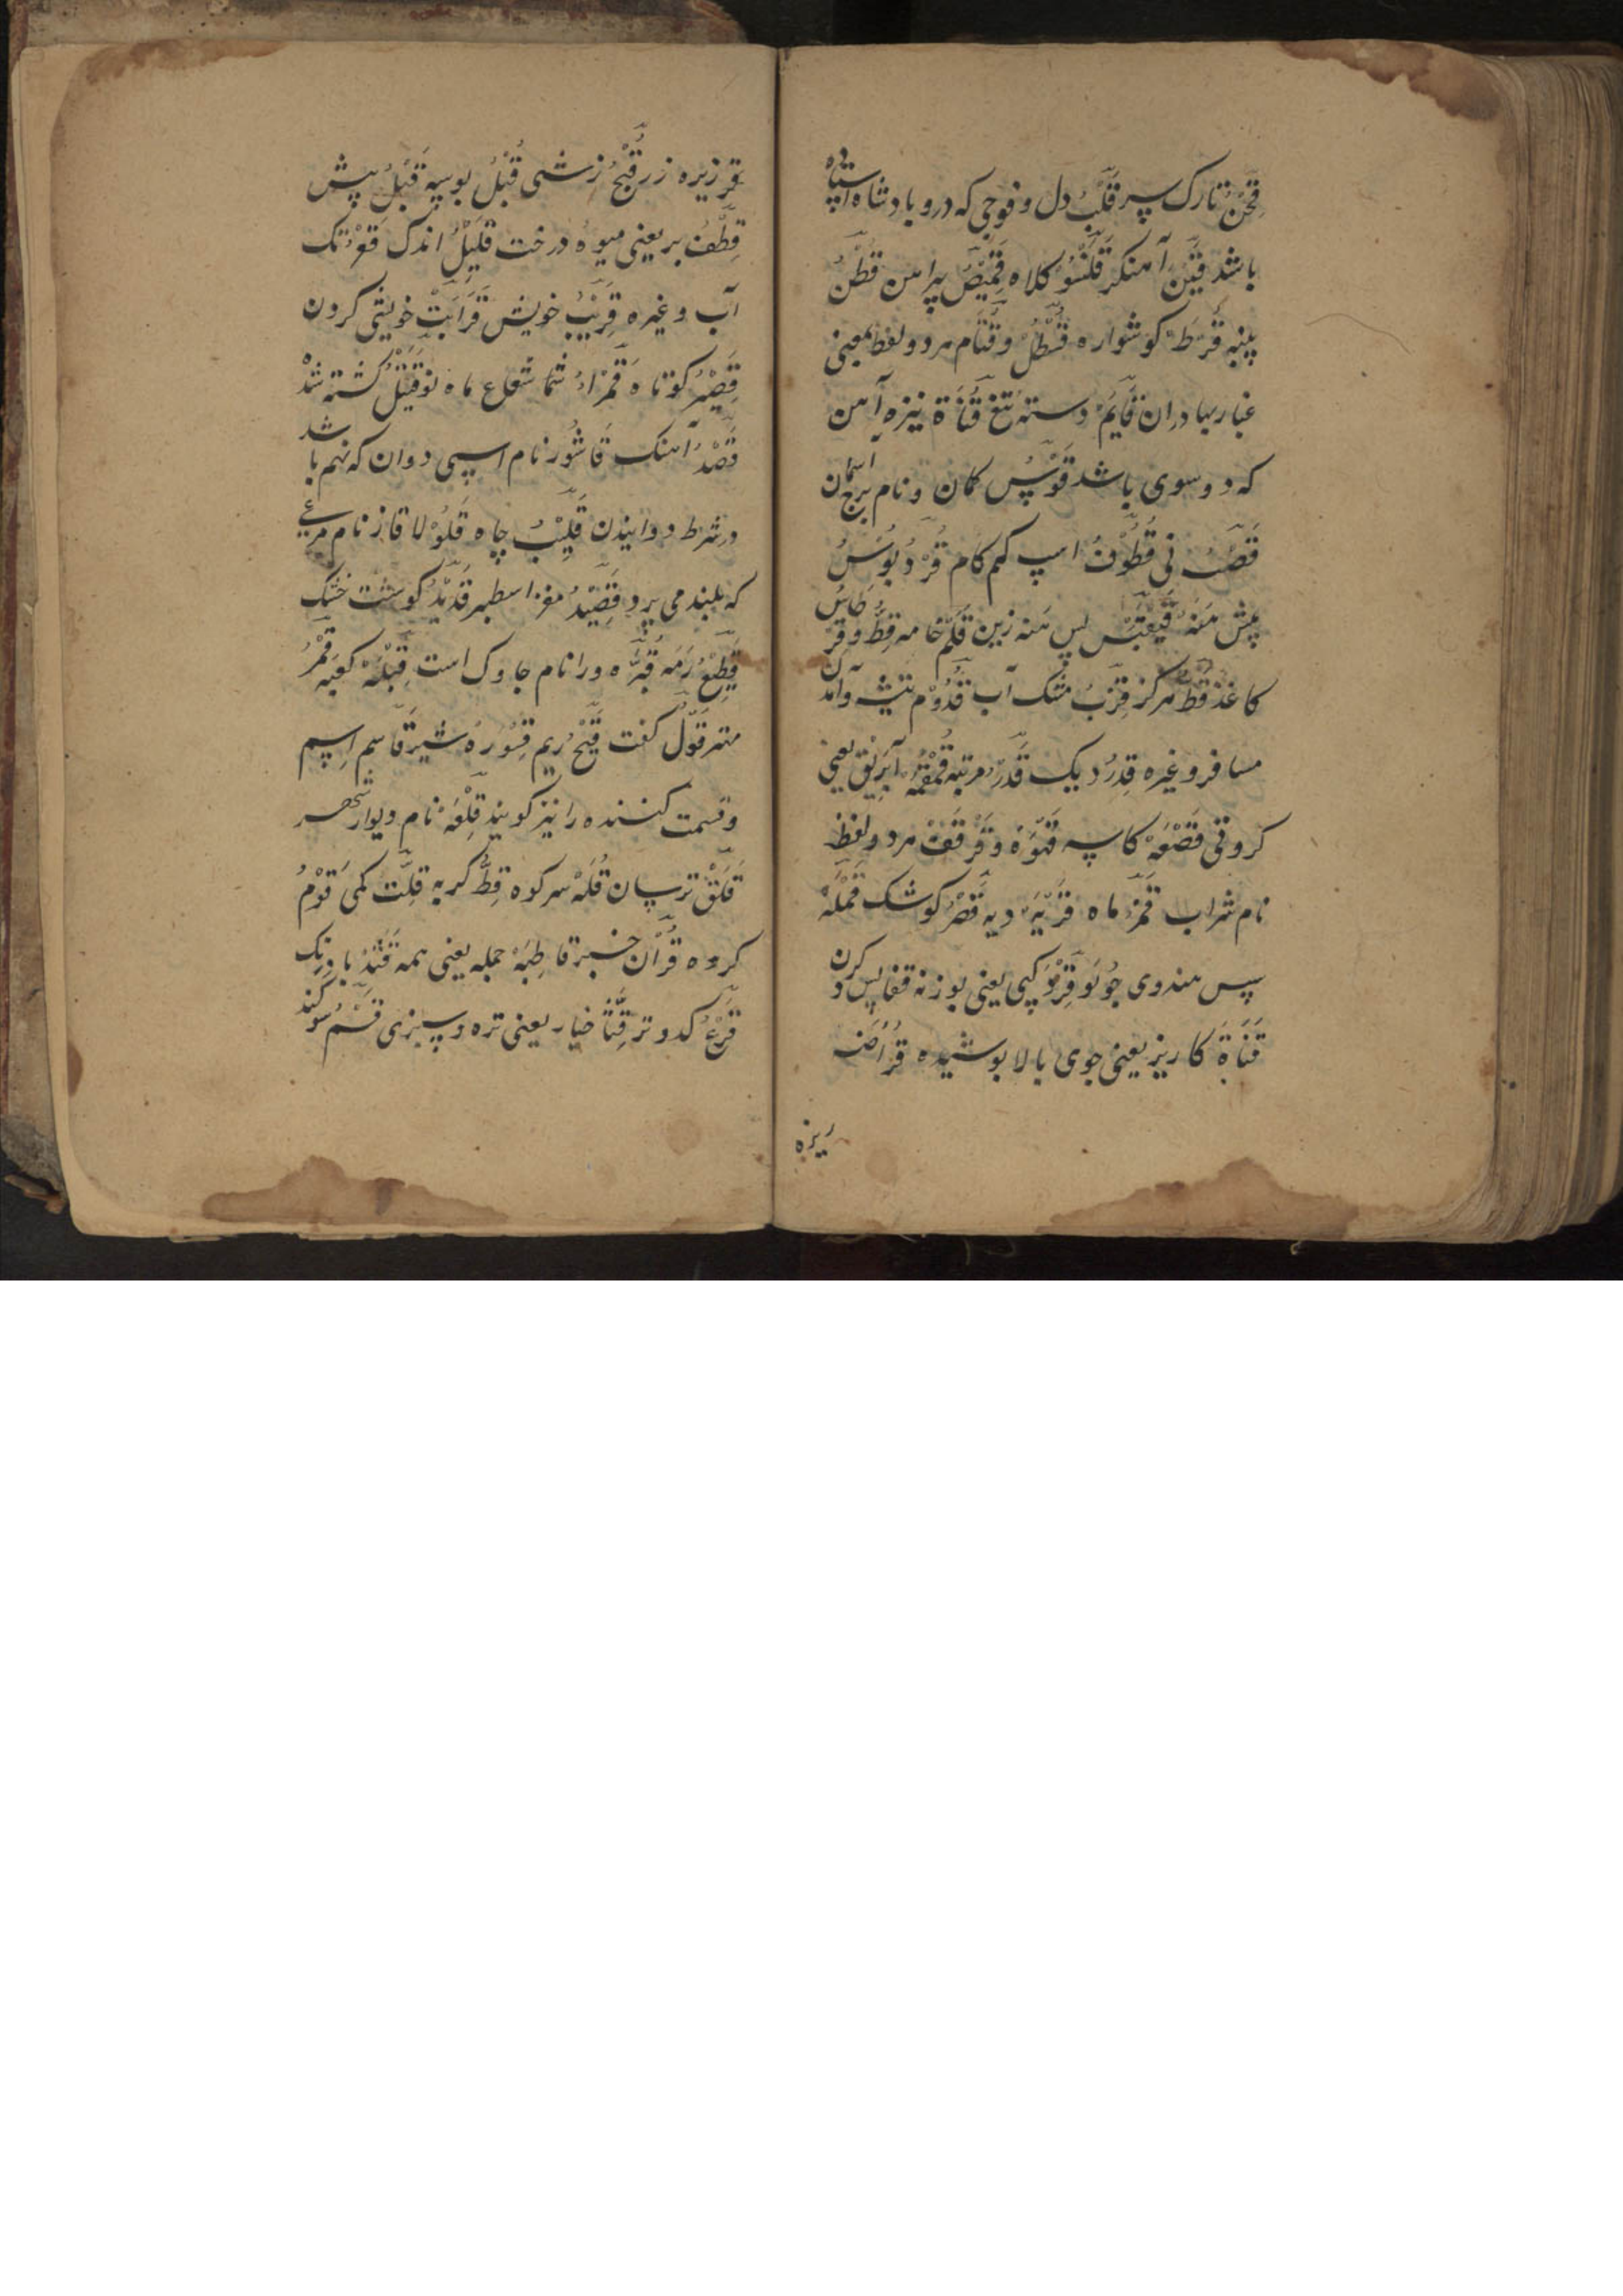 قِحْنْ تارک سر قَلْبْ دل و فوجی که درو پادشاه استاده
باشد قَیْنْ آهنکر قَلَنْسُوْ کلاه قَمِیْصْ پیراهن قُطْنْ
پنبه قُرْطْ کوشواره قَسْطَلْ و قَتَام هر دو لفظ بمعنی
غبار بهادران قَایَمْ دسته تیغ قَنَاة نیزه آهن
که دو سوی باشد قَوْسْ کمان و نام برج آسمان
قَصَبْ نی قَطُوْفْ اسپ کم کام
پیش پس زین قَلَمْ خامه قِطْ و
کاغذ قَطْ هرکز قِرْبْ مشک آب قَدُوْم تیشه و آمدن
مسافر و غیره قِدْرْ دیک قَدْرْ مرتبه قُمْقُمَهْ اَبْرِیْق یعنی
قَصْعَهْ کاسه قَهْوَهْ و قَرْقَفْ هر دو لفظ
نام شراب قَمَرْ ماه قَرْیَهْ دیه قَصْرْ کوشک قَمْلَهْ
سپس هندوی جُوْنْ کپی یعنی بوزنه قفا پس کردن
قَنَاة کاریز یعنی جوی بالا پوشیده قُرَاضَه
ریزه
زیزه زر قُبْحْ زشتی قُبْلْ بوسه قَبْلْ پیش
قِطْفْ بر یعنی میوه درخت قَلِیْلْ اندک قَعْرْ تک
آب و غیره قَرِیْبْ خویش قَرَابَتْ خویشی کردن
قَصِیْرْ کوتاه قَمْرَاءْ شعاع ماه قَتِیْلْ کشته شده
قَصْدْ آهنک قَاشُوْر نام اسپی دوان که نهم باشد
در شرط دوانیدن قَلِیْبْ چاه قَلُوْلا قاز نام مرغی
که بلند می پرد قَصِیْدْ مغز اسطبر قَدِیْدْ کوشت خشک
قَطِیْعْ رَمَه قُبَّرَه ورا نام جاوک است قِبْلَهْ کعبه قَمْرْ
مهتر قَوْلْ کفت قَیْحْ ریم قَسْوَرَهْ شیر قَاسِم اسم
و قسمت کننده را نیز کویند قَلْعَهْ نام دیوار
قَلَقْ ترسان قُلَّهْ سر کوه قِطْ کربه قِلَّت کمی قَوْمْ
کروه قُرْآن خبر قَاطِبَهْ جمله یعنی همه قَثَدْ بادرنک
قَرْعْ کدو تر قِثَّا خیار یعنی تره و سبزی قَسَمْ سوکند